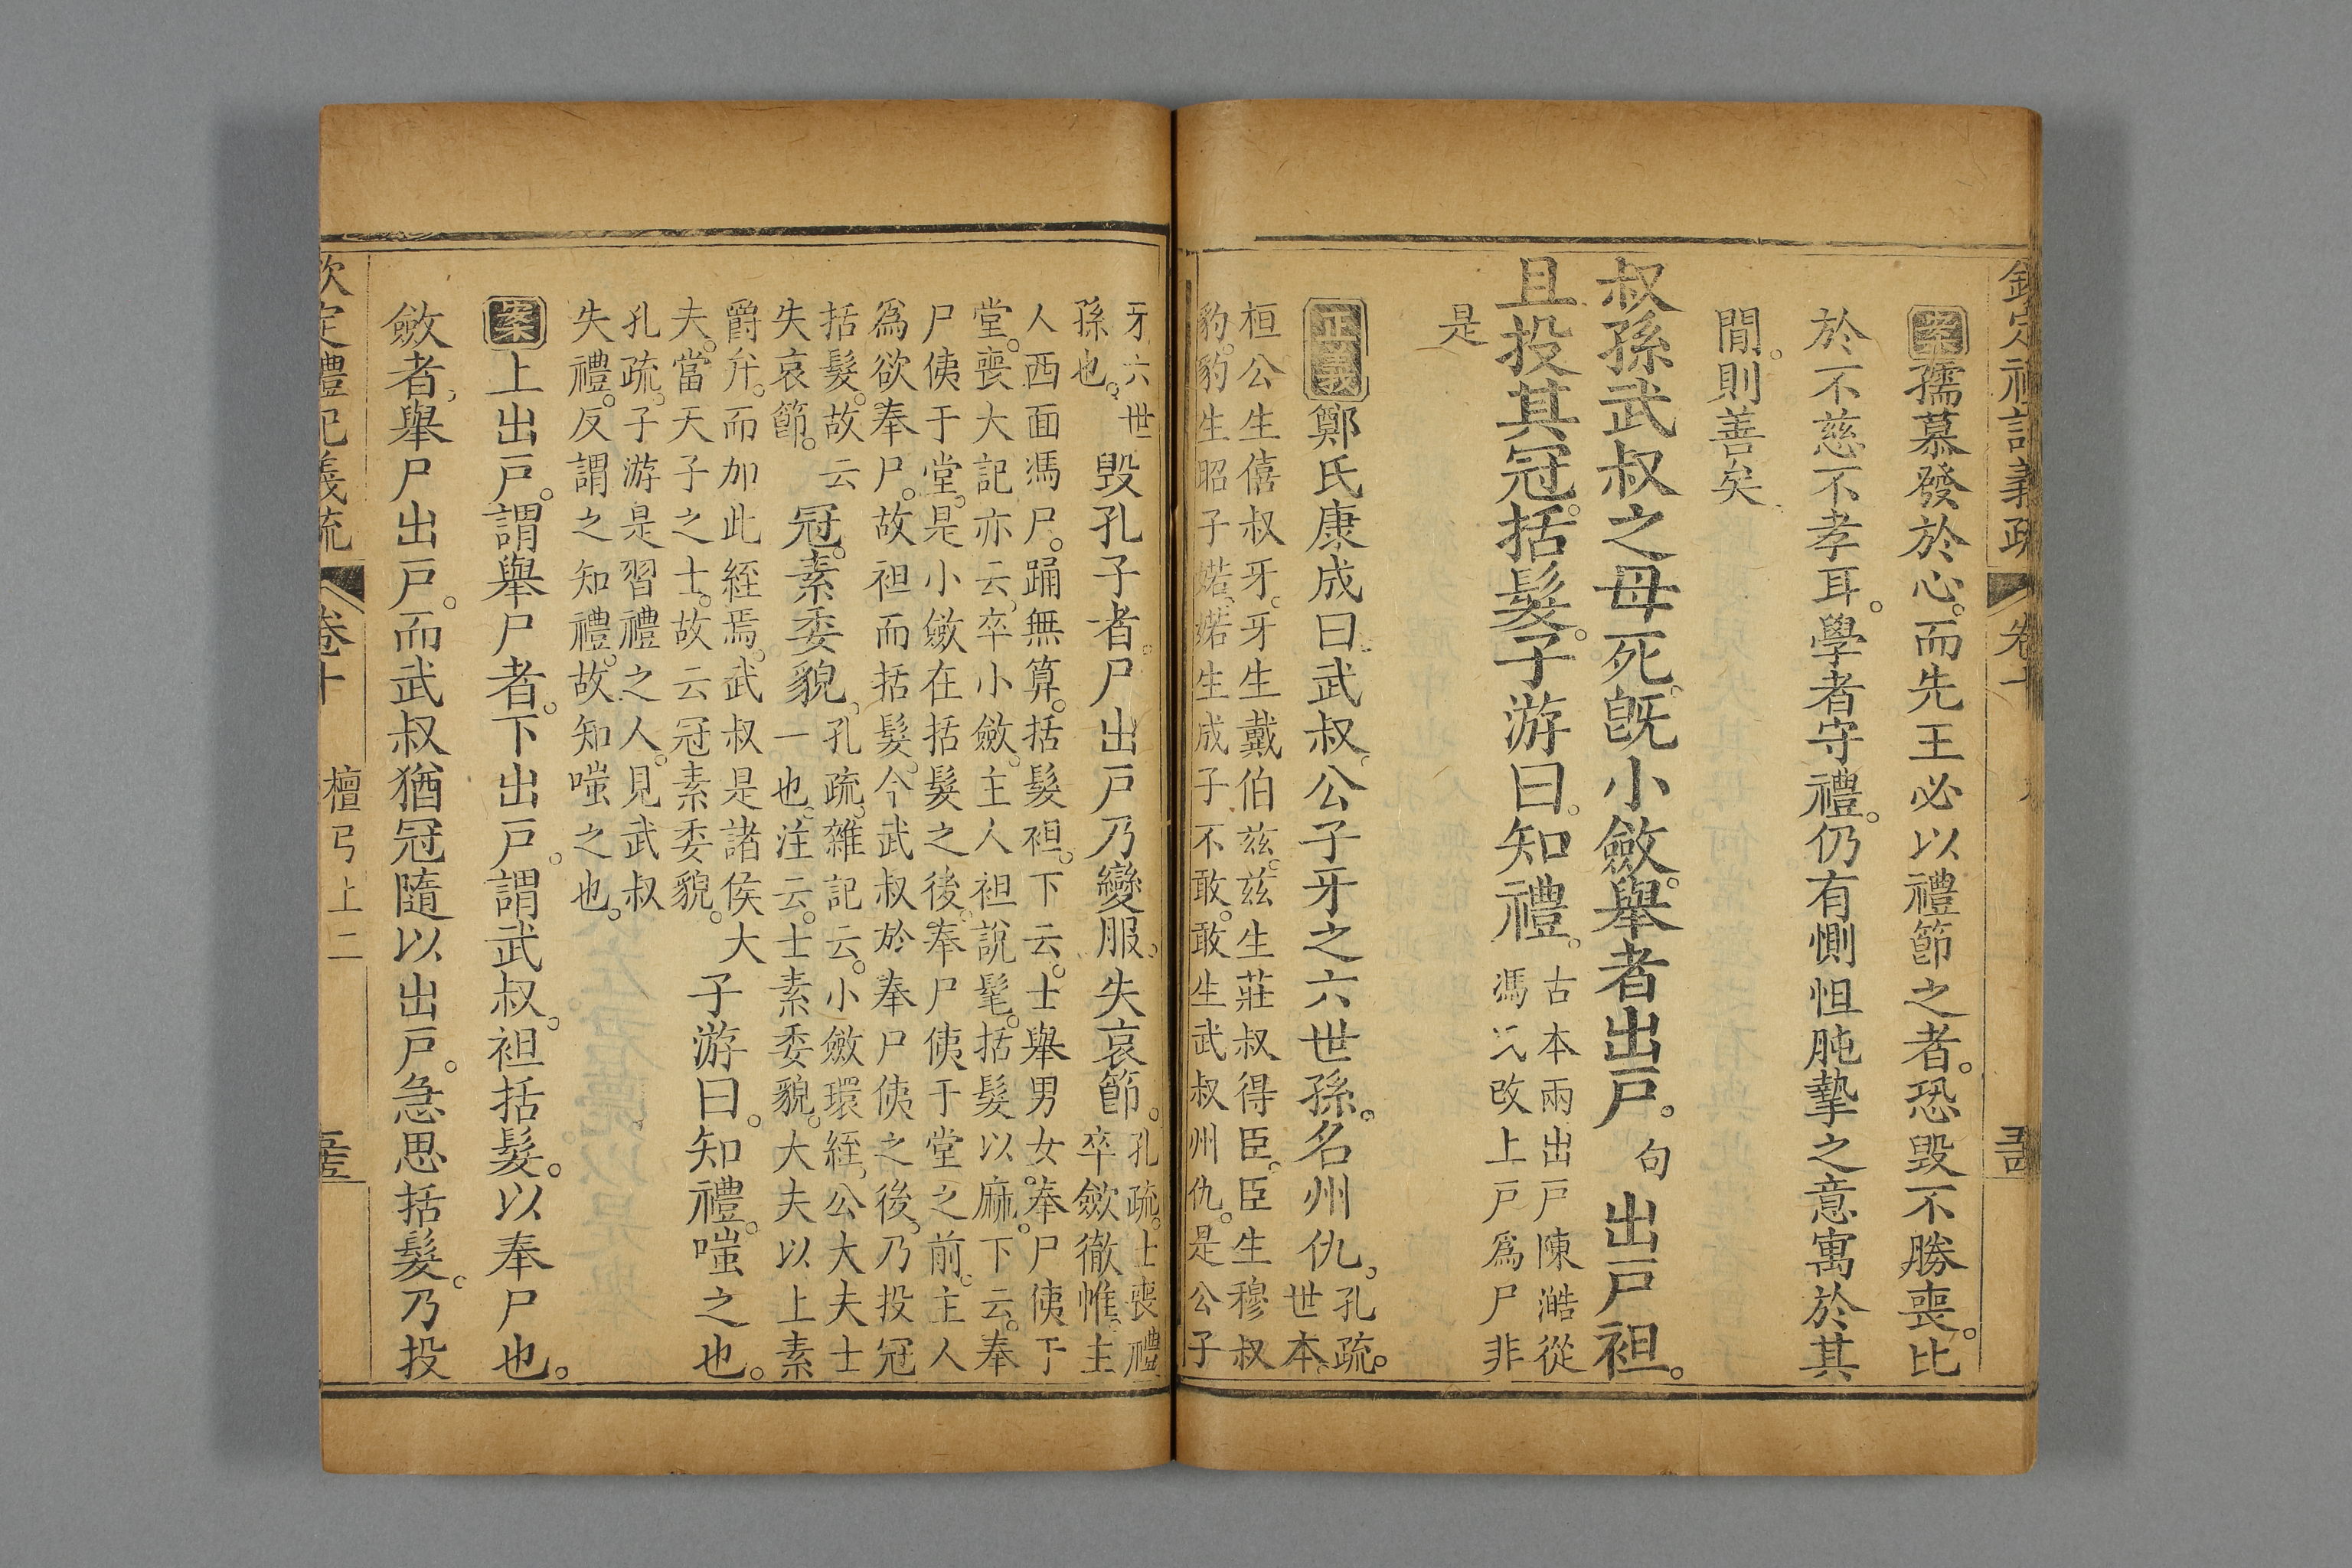 欽定禮記義疏 卷十
案孺慕發於心。而先王必以禮節之者。恐毀不勝喪。比
於不慈不孝耳。學者守禮。仍有惻怛肫摯之意寓於其
閒。則善矣
叔孫武叔之母死。旣小斂。舉者出戸。句出戸袒。
且投其冠。括髮。子游曰。知禮。
古本兩出戸陳澔從
馮氏改上戸爲尸非
是
正義鄭氏康成曰。武叔。公子牙之六世孫。名州仇。
孔疏。
世本。
桓公生僖叔牙。牙生戴伯兹。兹生莊叔得臣。臣生穆叔
豹。豹生昭子婼。婼生成子不敢。敢生武叔州仇。是公子
牙六世
孫也。
毀孔子者。尸出戸乃變服。失哀節。
孔疏。士喪禮
卒斂徹帷。主
人西面馮尸。踊無算。括髮袒。下云。士舉男女。奉尸侇于
堂。喪大記亦云。卒小斂。主人袒說髦。括髮以麻。下云。奉
尸侇于堂。是小斂在括髮之後。奉尸侇于堂之前。主人
爲欲奉尸。故袒而括髮。今武叔於奉尸侇之後。乃投冠
括髮。故云
失哀節。
冠。素委貌。
孔疏。雜記云。小斂環絰。公大夫士
一也。注云。士素委貌。大夫以上素
爵弁。而加此絰焉。武叔是諸侯大
夫。當天子之士。故云冠素委貌。
子游曰。知禮。嗤之也。
孔疏。子游是習禮之人。見武叔
失禮。反謂之知禮。故知嗤之也。
案上出戸。謂舉尸者。下出戸。謂武叔。袒括髮。以奉尸也。
斂者。舉尸出戸。而武叔猶冠隨以出戸。急思括髮。乃投
欽定禮記義疏 卷十 檀弓上二